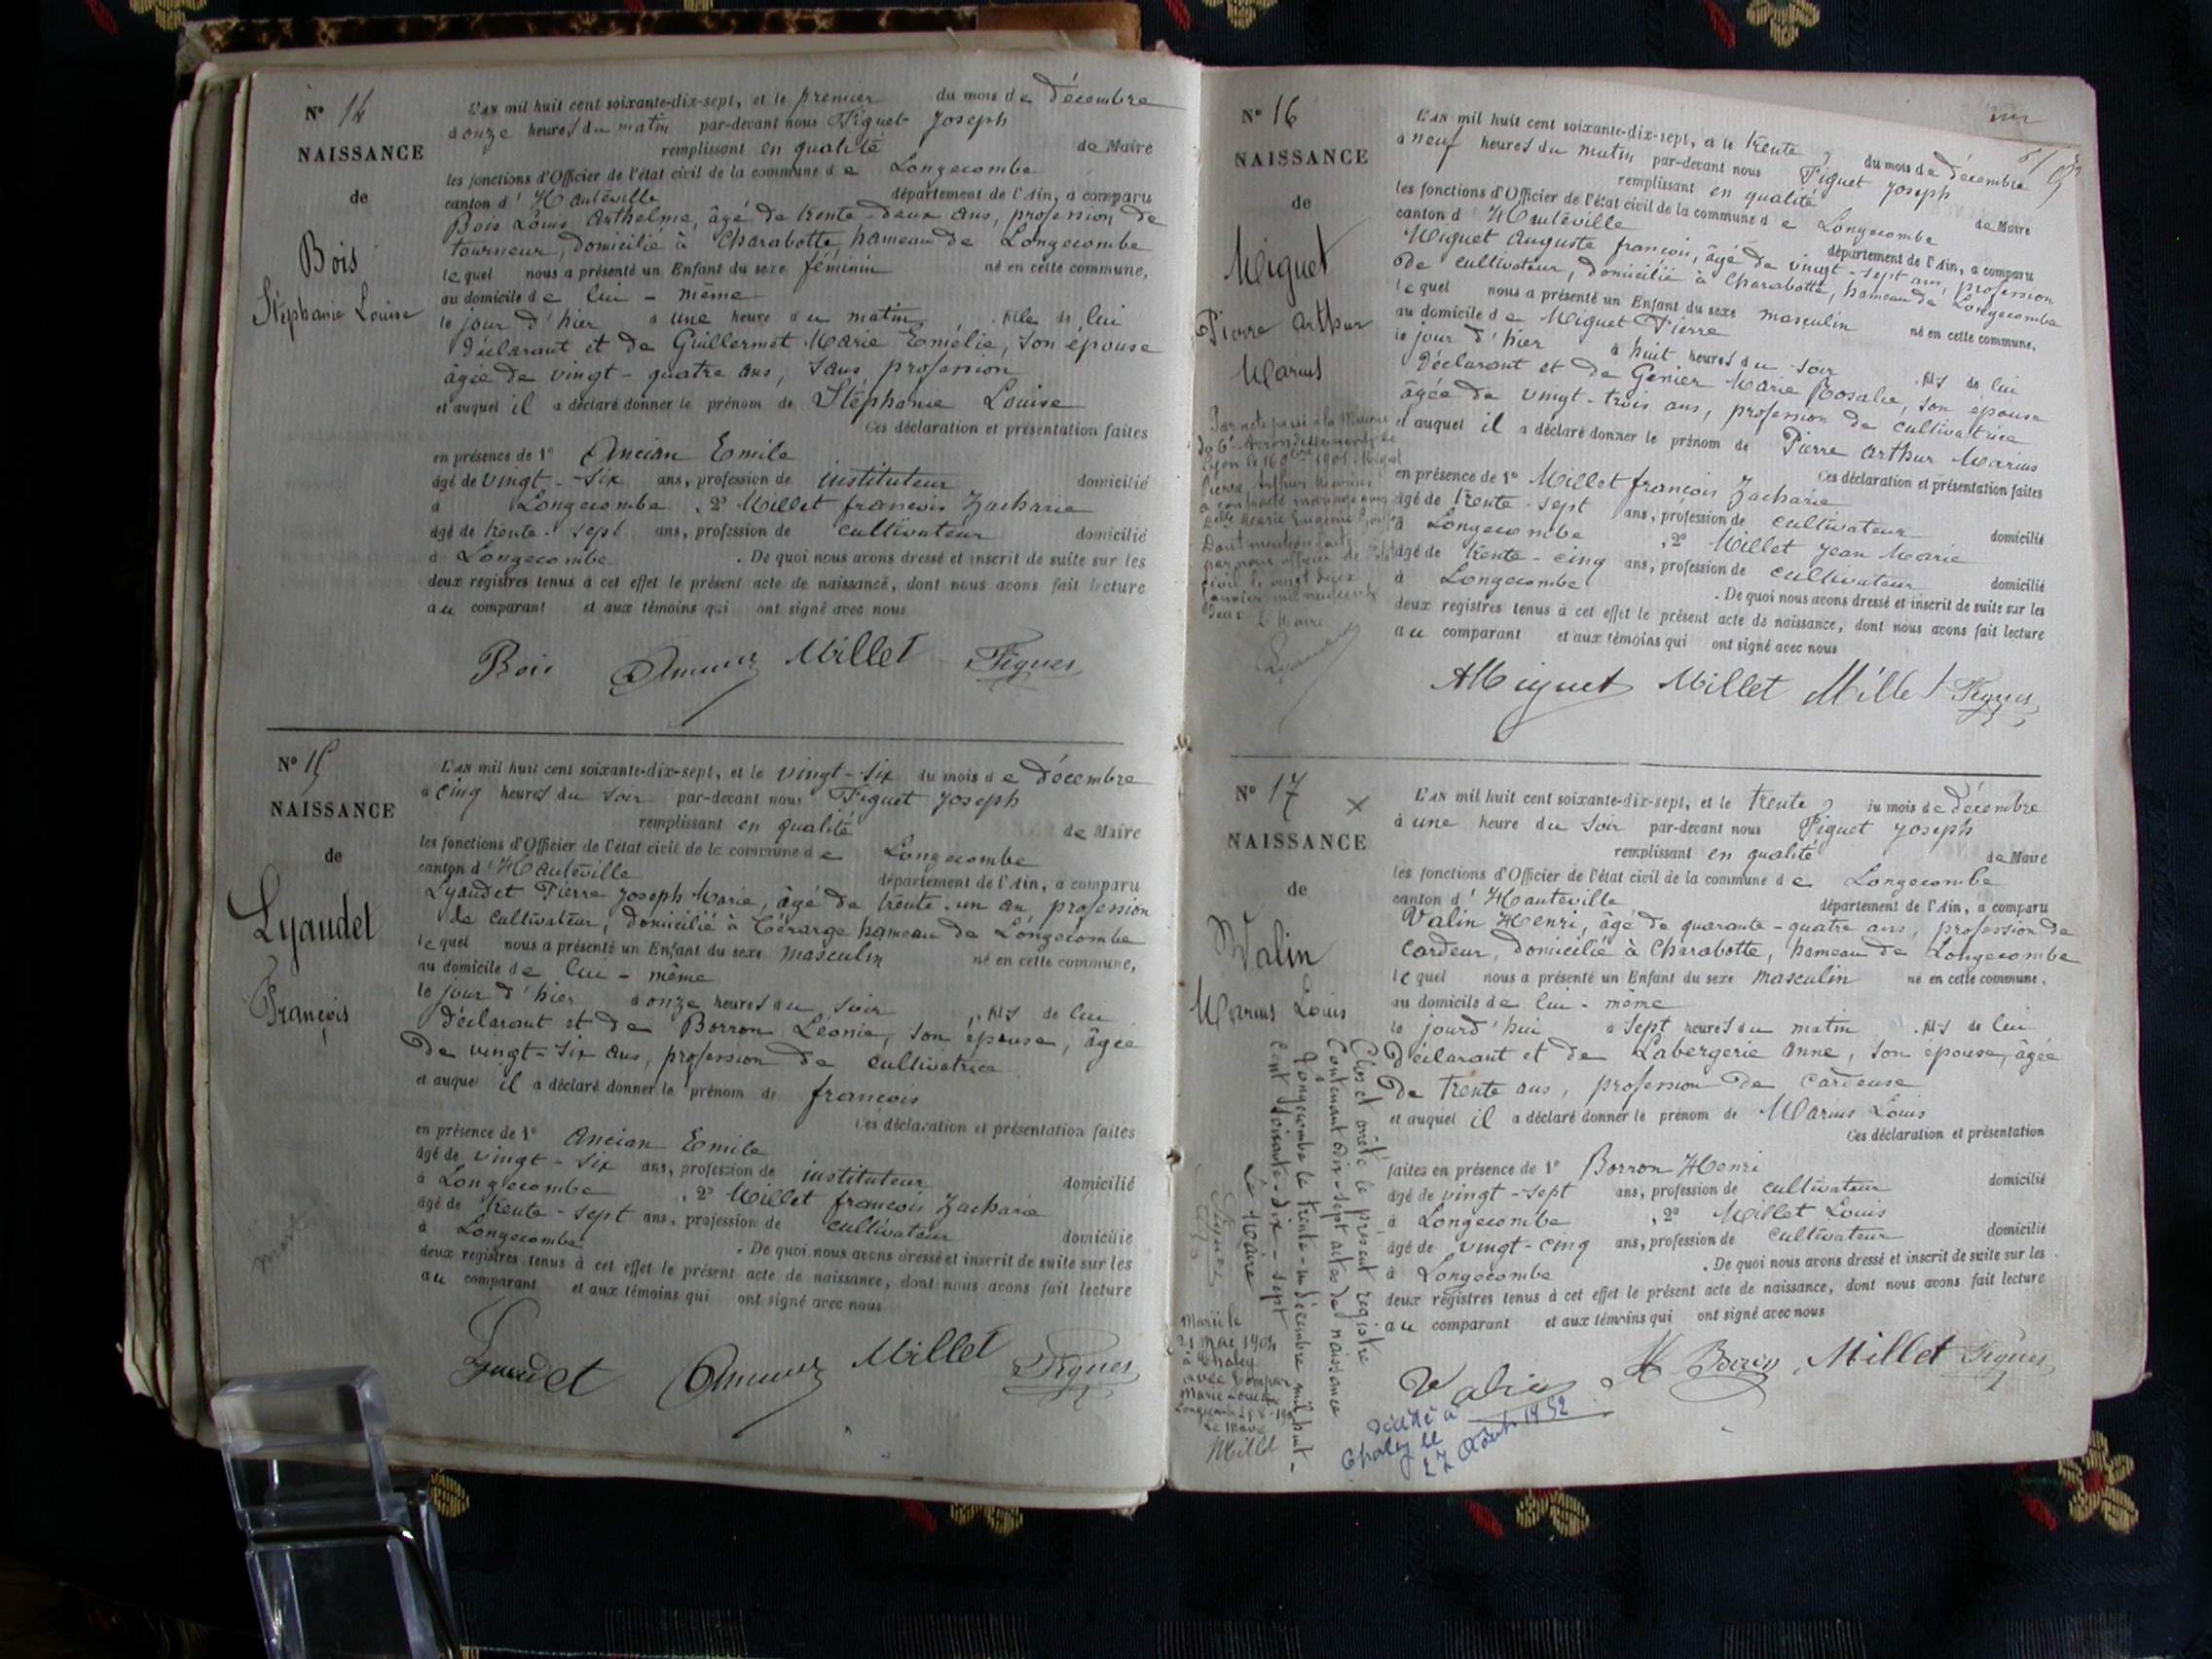 N° 14
NAISSANCE
de
Bois
Stéphanie Louise
L'AN mil huit cent soixante-dix-sept, et le premier du mois de décembre
à onze heures du matin par-devant nous Figuet Joseph
remplissant en qualité de Maire
les fonctions d'Officier de l'état civil de la commune de Longecombe
canton d'Hauteville département de l'Ain, a comparu
Bois Louis Anthelme, âgé de trente-deux ans, profession de
tourneur, domicilié à Charabotte, hameau de Longecombe
lequel nous a présenté un Enfant du sexe féminin né en cette commune,
au domicile de lui-même
le jour d'hier à une heure du matin, fille de lui
déclarant et de Guillermet Marie Emélie, son épouse
âgée de vingt-quatre ans, sans profession
et auquel il a déclaré donner le prénom de Stéphanie Louise
Ces déclaration et présentation faites
en présence de 1° Ancian Emile
âgé de vingt-six ans, profession de instituteur domicilié
à Longecombe, 2° Millet françois Zacharie
âgé de trente-sept ans, profession de cultivateur domicilié
à Longecombe. De quoi nous avons dressé et inscrit de suite sur les
deux registres tenus à cet effet le présent acte de naissance, dont nous avons fait lecture
au comparant et aux témoins qui ont signé avec nous
Bois Ancian Millet Figuet
N° 15
NAISSANCE
de
Lyaudet
François
L'AN mil huit cent soixante-dix-sept, et le vingt-six du mois de décembre
à cinq heures du soir par-devant nous Figuet Joseph
remplissant en qualité de Maire
les fonctions d'Officier de l'état civil de la commune de Longecombe
canton d'Hauteville département de l'Ain, a comparu
Lyaudet Pierre Joseph Marie, âgé de trente-un an profession
de cultivateur, domicilié à hameau de Longecombe
lequel nous a présenté un Enfant du sexe masculin né en cette commune,
au domicile de lui-même
le jour d'hier à onze heures du soir, fils de lui
déclarant et de Borron Léonie, son épouse, âgée
de vingt-six ans, profession de cultivatrice
et auquel il a déclaré donner le prénom de françois
Ces déclaration et présentation faites
en présence de 1° Ancian Emile
âgé de vingt-six ans, profession de instituteur domicilié
à Longecombe, 2° Millet françois Zacharie
âgé de trente-sept ans, profession de cultivateur domicilié
à Longecombe. De quoi nous avons dressé et inscrit de suite sur les
deux registres tenus à cet effet le présent acte de naissance, dont nous avons fait lecture
au comparant et aux témoins qui ont signé avec nous
Lyaudet Ancian Millet Figuet
N° 16
NAISSANCE
de
Miguet
Pierre Arthur
Marius
Par acte passé à la Mairie
du 6e Arrondissement de
Lyon le 16 1901. Miguet
Pierre Arthur Marius
a contracté mariage avec
Delle Marie Eugénie
Dont mention faite
par nous officier de l'état
civil le vingt deux
Janvier mil neuf cent
deux Le Maire
L'AN mil huit cent soixante-dix-sept, et le trente du mois de décembre
à neuf heures du matin par-devant nous Figuet Joseph
remplissant en qualité de Maire
les fonctions d'Officier de l'état civil de la commune de Longecombe
canton d'Hauteville département de l'Ain, a comparu
Miguet Auguste françois, âgé de vingt-sept ans, profession
de cultivateur, domicilié à Charabotte, hameau de Longecombe
lequel nous a présenté un Enfant du sexe masculin né en cette commune,
au domicile de Miguet Pierre
le jour d'hier à huit heures du soir, fils de lui
déclarant et de Genier Marie Rosalie, son épouse
âgée de vingt-trois ans, profession de cultivatrice
et auquel il a déclaré donner le prénom de Pierre Arthur Marius
Ces déclaration et présentation faites
en présence de 1° Millet françois Zacharie
âgé de trente-sept ans, profession de cultivateur domicilié
à Longecombe, 2° Millet Jean Marie
âgé de trente-cinq ans, profession de cultivateur domicilié
à Longecombe. De quoi nous avons dressé et inscrit de suite sur les
deux registres tenus à cet effet le présent acte de naissance, dont nous avons fait lecture
au comparant et aux témoins qui ont signé avec nous
AMiguet Millet Millet Figuet
N° 17 X
NAISSANCE
de
Valin
Marius Louis
L'AN mil huit cent soixante-dix-sept, et le trente du mois de décembre
à une heure du soir par-devant nous Figuet Joseph
remplissant en qualité de Maire
les fonctions d'Officier de l'état civil de la commune de Longecombe
canton d'Hauteville département de l'Ain, a comparu
Valin Henri, âgé de quarante-quatre ans, profession de
cardeur, domicilié à Charabotte, hameau de Longecombe
lequel nous a présenté un Enfant du sexe masculin né en cette commune,
au domicile de lui-même
le jourd'hui à sept heures du matin, fils de lui
déclarant et de Labergerie Anne, son épouse, âgée
de trente ans, profession de cardeuse
et auquel il a déclaré donner le prénom de Marius Louis
Ces déclaration et présentation
faites en présence de 1° Borron Henri
âgé de vingt-sept ans, profession de cultivateur domicilié
à Longecombe, 2° Millet Louis
âgé de vingt-cinq ans, profession de cultivateur domicilié
à Longecombe. De quoi nous avons dressé et inscrit de suite sur les
deux registres tenus à cet effet le présent acte de naissance, dont nous avons fait lecture
au comparant et aux témoins qui ont signé avec nous
Valin H Borron Millet Figuet
Clos et arrêté le présent registre
contenant dix-sept actes de naissance
Longecombe le trente-un décembre mil huit-
cent soixante-dix-sept
Le Maire
Figuet
Marié le
21 Mai 1904
à Chaley
avec
Marie Louise
Le Maire
Millet
Décédé à
Chaley le
27 Août 1952